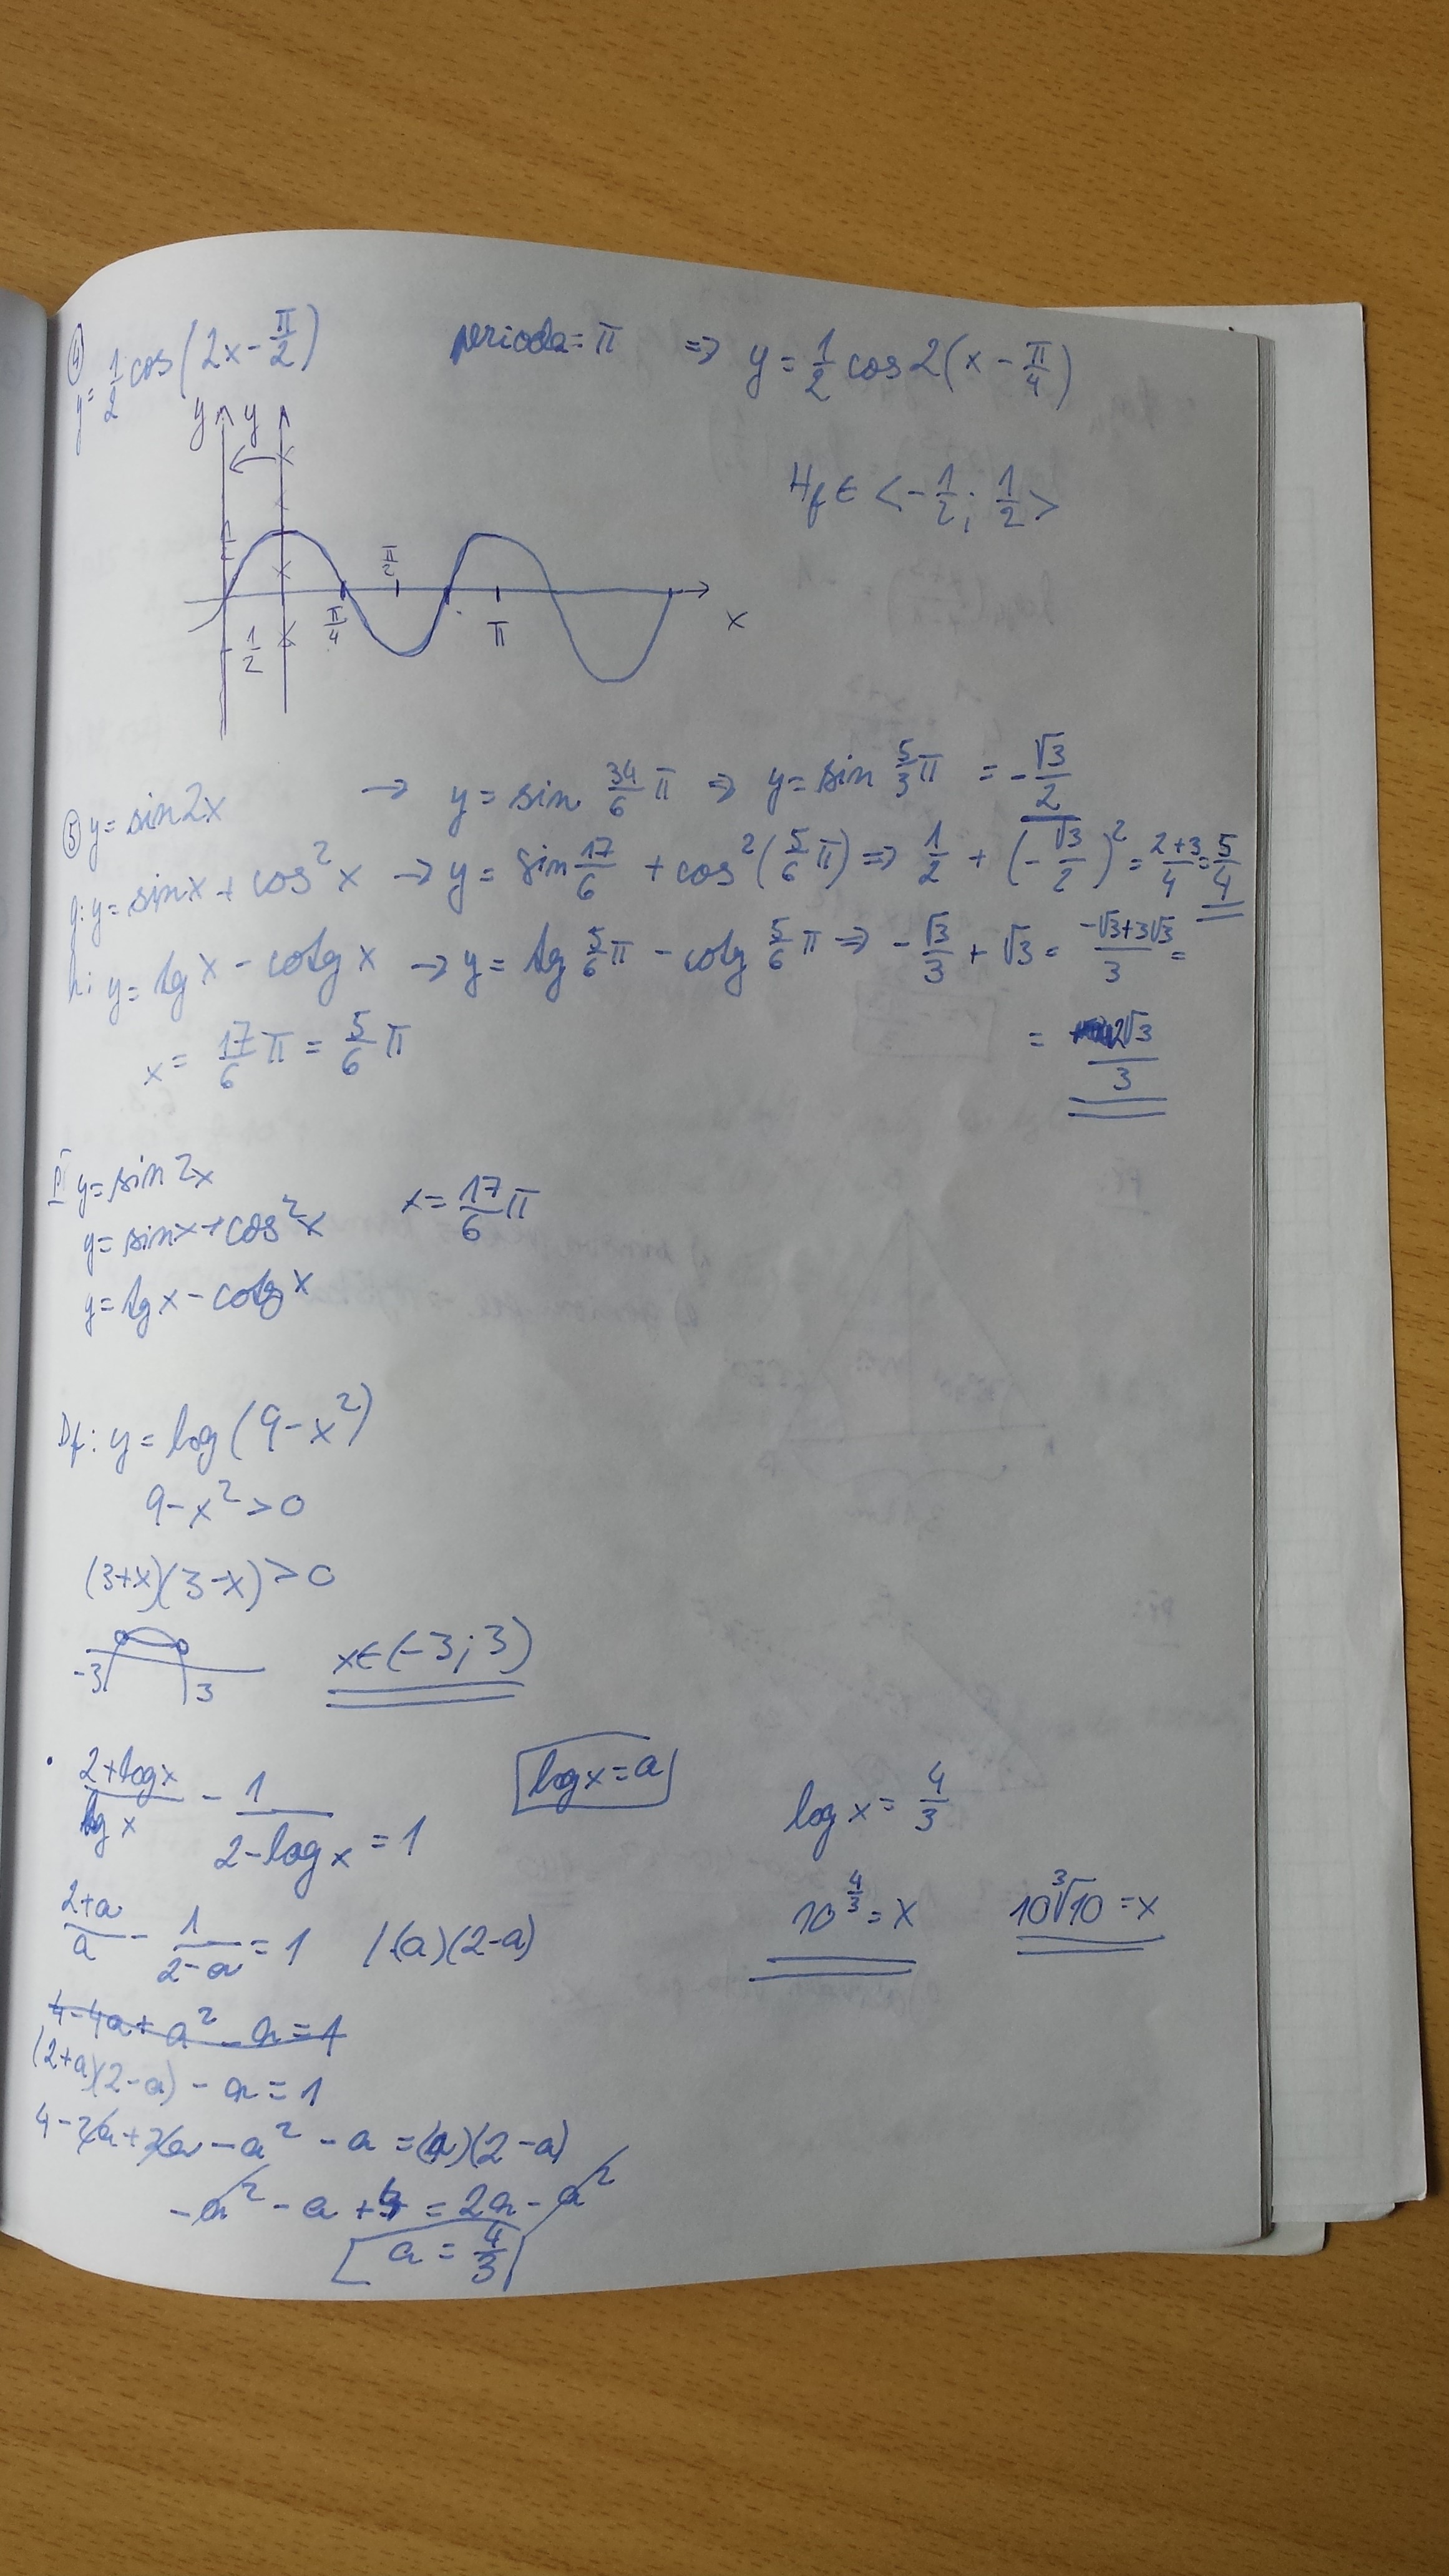 ④ y = 1/2 cos(2x - π/2) perioda = π ⇒ y = 1/2 cos 2(x - π/4)
y y
Hf ∈ <-1/2; 1/2>
π/2
π/4 π x
1/2
⑤ y = sin 2x → y = sin 34/6 π ⇒ y = sin 5/3 π = -√3/2
g: y = sin x + cos² x → y = sin 17/6 + cos² (5/6 π) ⇒ 1/2 + (-√3/2)² = 2+3/4 = 5/4
h: y = tg x - cotg x → y = tg 5/6 π - cotg 5/6 π ⇒ -√3/3 + √3 = -√3+3√3/3 =
x = 17/6 π = 5/6 π = 2√3/3
y = sin 2x
y = sin x + cos² x x = 17/6 π
y = tg x - cotg x
Df: y = log (9 - x²)
9 - x² > 0
(3+x)(3-x) > 0
-3 3 x ∈ (-3; 3)
2+log x/log x - 1/2-log x = 1 log x = a log x = 4/3
2+a/a - 1/2-a = 1 /·(a)(2-a) 10^4/3 = x 10∛10 = x
4-4a+a² - a = 1
(2+a)(2-a) - a = 1
4 - 2a + 2a - a² - a = (a)(2-a)
-a² - a + 4 = 2a - a²
a = 4/3